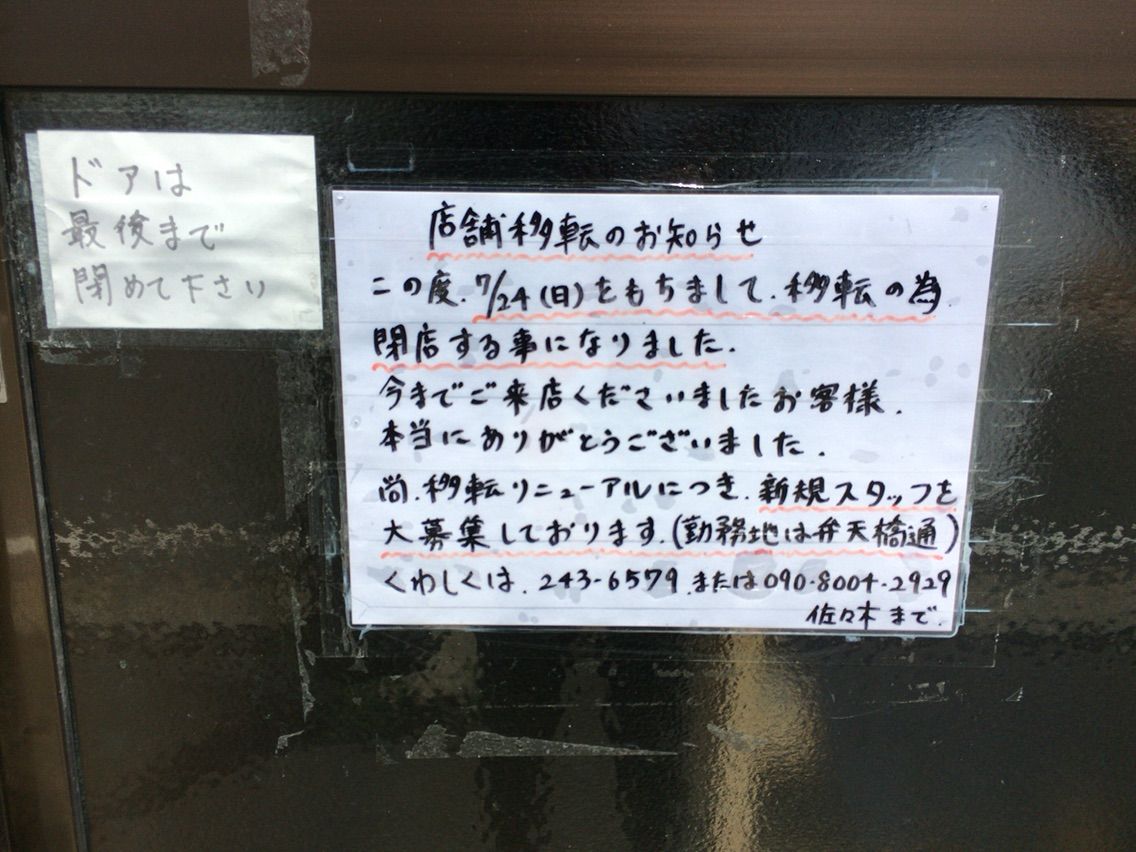 ドアは
最後まで
閉めて下さい
店舗移転のお知らせ
この度、7/24(日)をもちまして、移転の為、
閉店する事になりました。
今までご来店くださいましたお客様、
本当にありがとうございました。
尚、移転リニューアルにつき、新規スタッフを
大募集しております。(勤務地は弁天橋通)
くわしくは、243-6579、または090-8004-2929
佐々木まで。